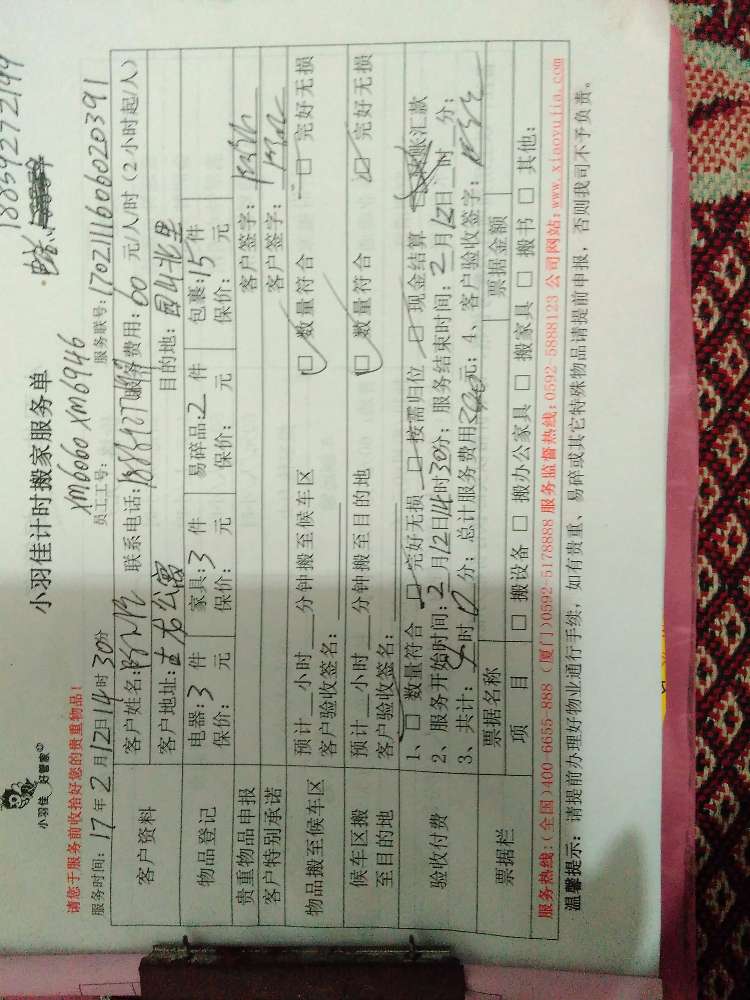 18859272199
小羽佳 好管家
小羽佳计时搬家服务单
请您于服务前收拾好您的贵重物品！
员工工号：XM6060 XM6946
服务时间：17年2月12日14时30分 服务联号：1702111606020391
客户资料
客户姓名： 联系电话： 服务费用：60 元/人/时（2小时起/人）
客户地址：古龙公寓 目的地：园山北里
物品登记
电器：3 件 家具：3 件 易碎品：2 件 包裹：15 件
保价： 元 保价： 元 保价： 元 保价： 元
贵重物品申报 客户签字：
客户特别承诺 客户签字：
物品搬至候车区
预计 小时 分钟搬至候车区 □ 数量符合 □ 完好无损
客户验收签名：
候车区搬至目的地
预计 小时 分钟搬至目的地 □ 数量符合 □ 完好无损
客户验收签名：
验收付费
1、□ 数量符合 □ 完好无损 □ 按需归位 □ 现金结算 □ 转账汇款
2、服务开始时间：2 月12日14时30分；服务结束时间：2 月12日 时 分；
3、共计： 时 分；总计服务费用 元；4、客户验收签字：
票据栏
票据名称 票据金额
项 目 □ 搬设备 □ 搬办公家具 □ 搬家具 □ 搬书 □ 其他：
服务热线：（全国）400-6655-888（厦门）0592-5178888 服务监督热线：0592-5888123 公司网站：www.xiaoyujia.com
温馨提示：请提前办理好物业通行手续，如有贵重、易碎或其它特殊物品请提前申报，否则我司不予负责。